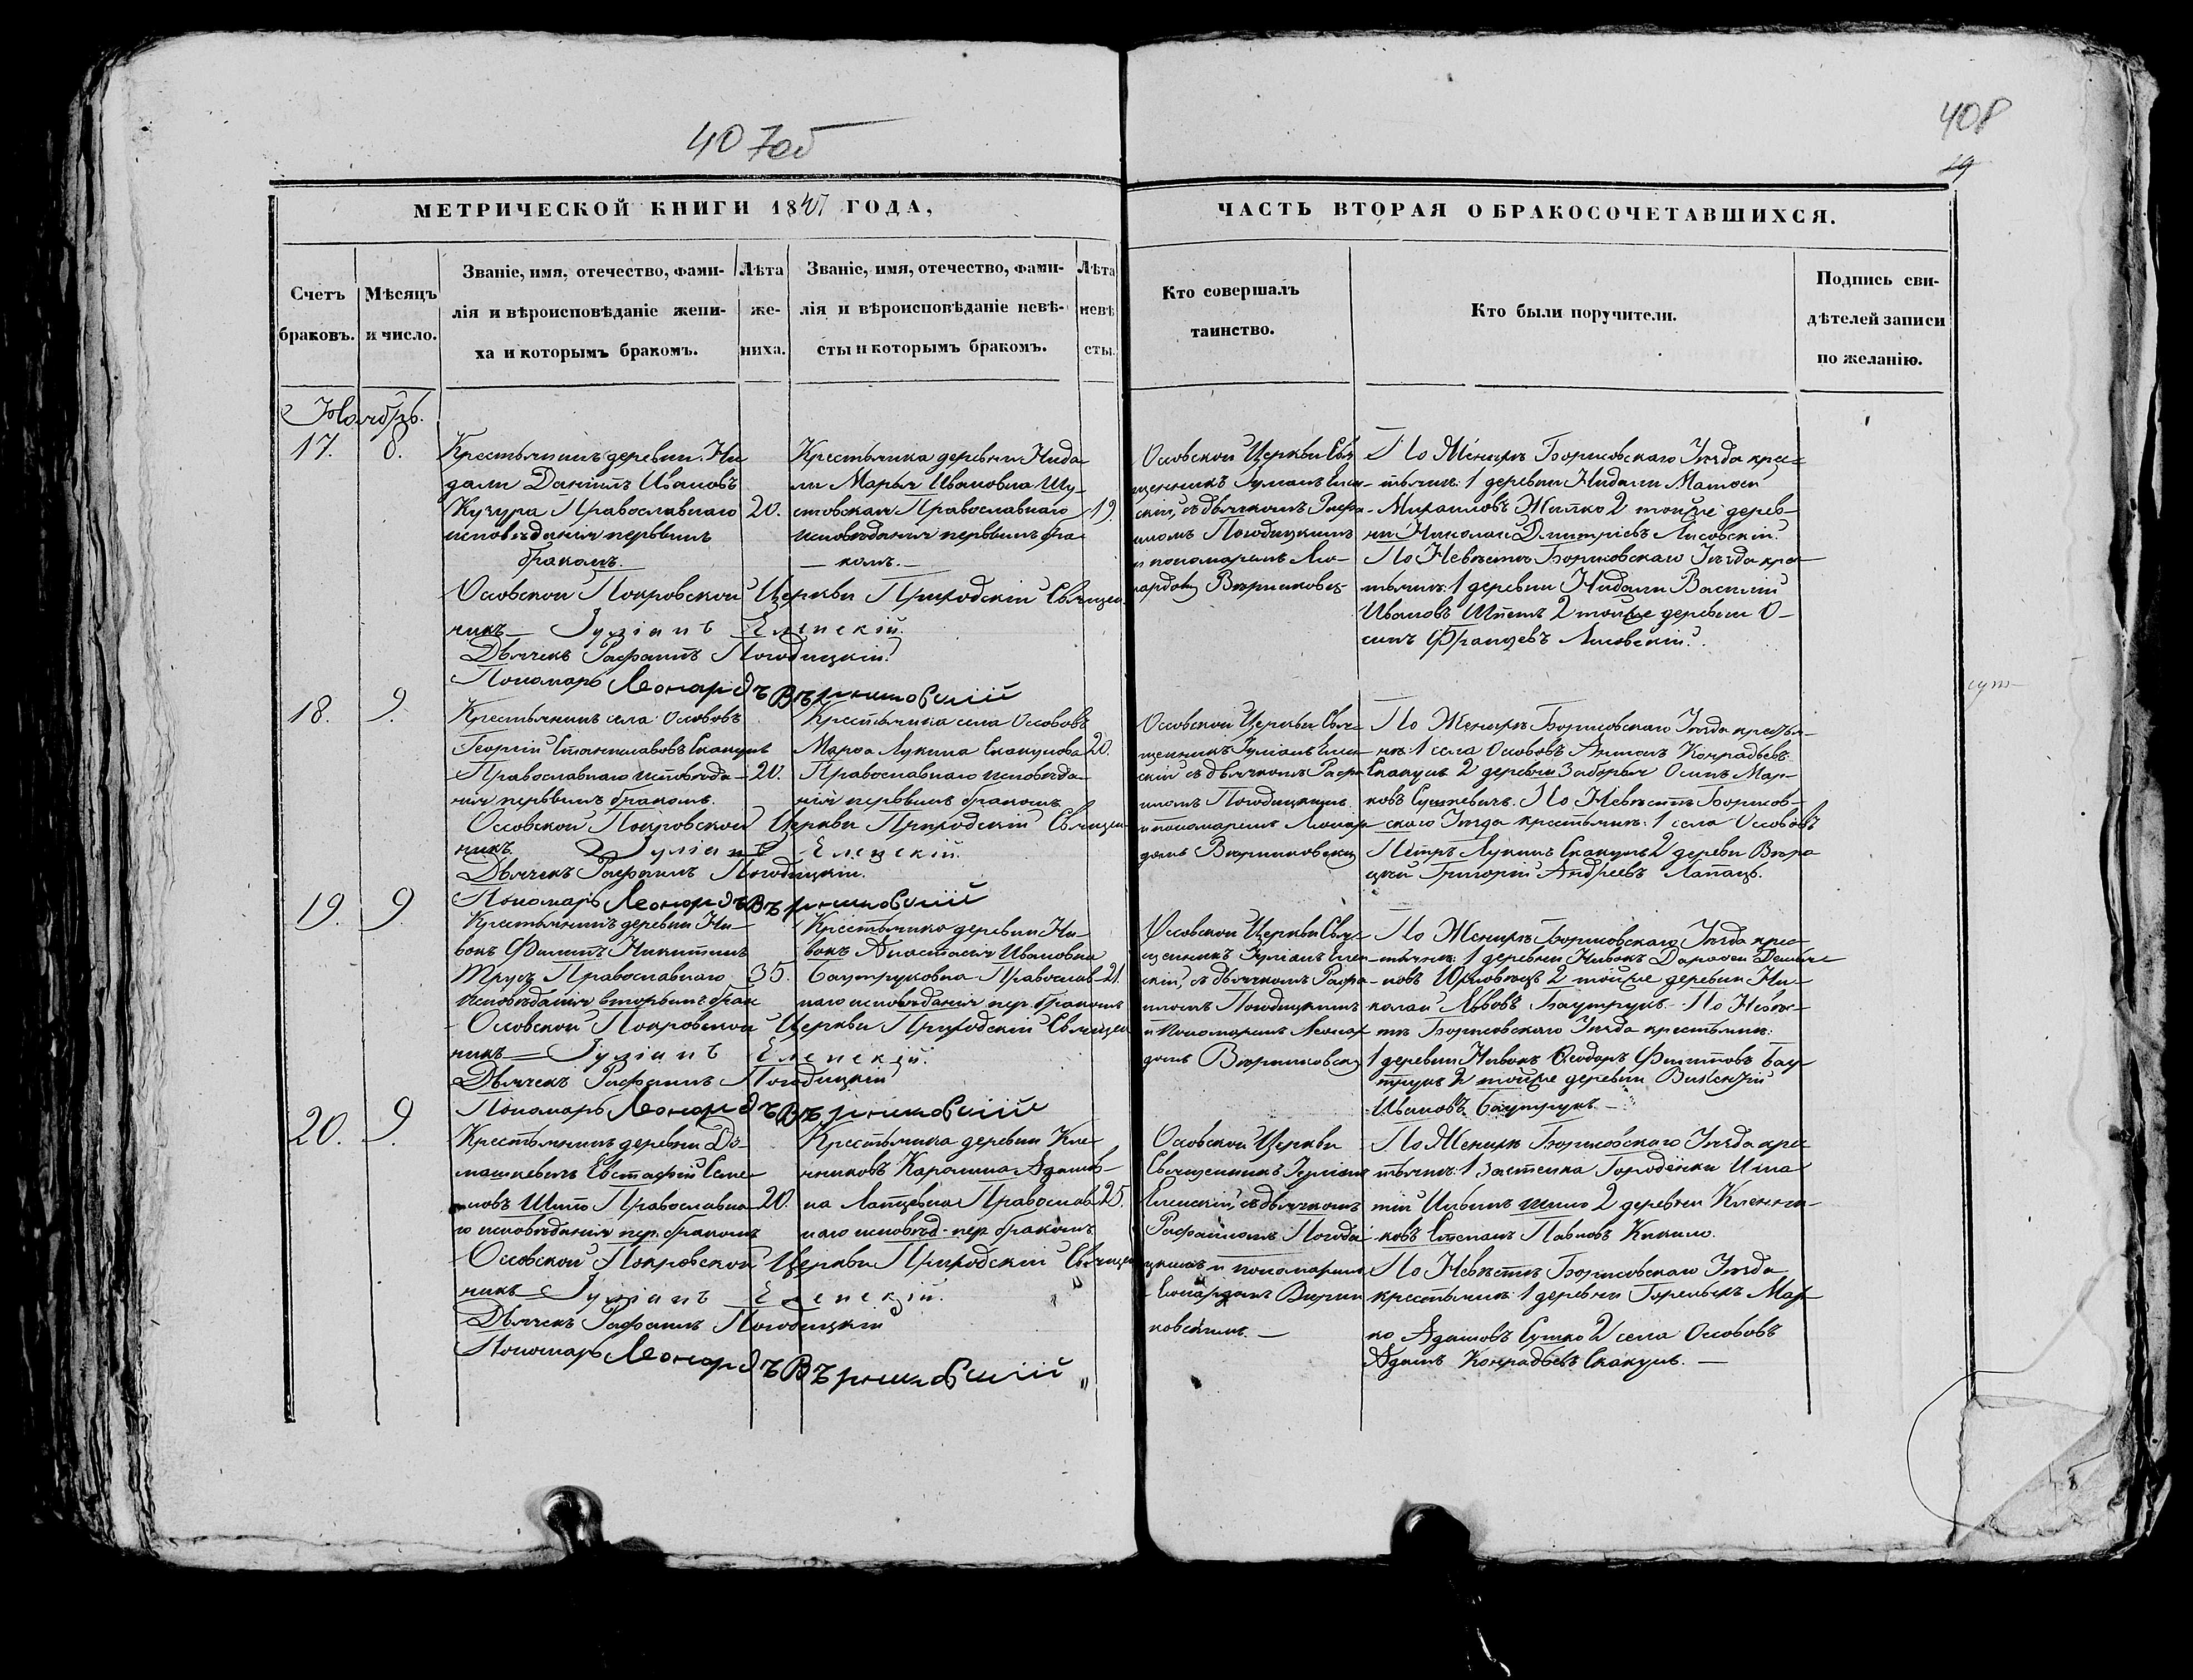 407об
408
19
МЕТРИЧЕСКОЙ КНИГИ 1847 ГОДА,
Счетъ браковъ.
Мѣсяцъ и число.
Званіе, имя, отечество, фами-
лія и вѣроисповѣданіе жени-
ха и которымъ бракомъ.
Лѣта
же-
ниха.
Званіе, имя, отечество, фами-
лія и вѣроисповѣданіе невѣ-
сты и которымъ бракомъ.
Лѣта
невѣ
сты.
ЧАСТЬ ВТОРАЯ О БРАКОСОЧЕТАВШИХСЯ.
Кто совершалъ
таинство.
Кто были поручители.
Подпись сви-
дѣтелей записи
по желанію.
Ноябрь.
17. 8.
Крестьянинъ деревни Ни
дали Даніилъ Ивановъ
Кучура Православнаго
исповѣданія первымъ
бракомъ.
20.
Крестьянка деревни Нида
ли Марья Ивановна Шу-
стовская Православнаго
исповѣданія первымъ бра
комъ.
19.
Осовской Церкви Свя
щенникъ Іуліанъ Елен
скій, съ дьячкомъ Рафа
иломъ Погодицкимъ
и пономаремъ Лео
нардомъ Вѣриковск
По Женихѣ Борисовскаго Уѣзда крес=
тьяник: 1 деревни Нидали Матвей
Михаиловъ Жилко 2 тойже дерев-
ни Николай Дмитріевъ Лисовскій.
По Невѣстѣ Борисовскаго Уѣзда крес
тьяник: 1 деревни Нидали Василій
Ивановъ Шпетъ 2 тойже деревни О-
сипъ Францевъ Лисовскій.
Осовской Покровской Церкви Приходскій Священ
никъ Іуліанъ Еленскій.
Дьячекъ Рафаилъ Погодицкій.
Пономарь Леонардъ Вѣриковскій
18. 9.
Крестьянинъ села Осововъ
Георгій Станиславовъ Скакунъ
Православнаго исповѣда-
нія первымъ бракомъ.
20.
Крестьянка села Осововъ
Марѳа Лукина Скакунова
Православнаго исповѣда
нія первымъ бракомъ
20.
Осовской Церкви Свя
щенникъ Іуліанъ Елен
скій съ дьячкомъ Рафа
иломъ Погодицкимъ
и пономаремъ Леонар
домъ Вѣриковски
По Женихѣ Борисовскаго Уѣзда крестья-
не: 1 села Осововъ Антонъ Кондратьевъ
Скакунъ 2 деревни Заборья Осипъ Мар-
ковъ Сушкевичъ. По Невѣстѣ Борисов-
скаго Уѣзда крестьяник: 1 села Осововъ
Петръ Лукинъ Скакунъ 2 деревни
Григорій Андреевъ Лапацъ.
Осовской Покровской Церкви Приходскій Священ
никъ Іуліанъ Еленскій.
Дьячекъ Рафаилъ Погодицкій.
Пономарь Леонардъ Вѣриковскій
19. 9
Крестьянинъ деревни Ни-
вокъ Филипъ Никитинъ
Трусъ Православнаго
исповѣданія вторымъ брак
35.
Крестьянка деревни Ни-
вокъ Анастасія Ивановна
Баутруковна Православ-
наго исповѣданія пер. бракомъ
21.
Осовской Церкви Свя-
щенникъ Іуліанъ Елен
скій, съ дьячкомъ Рафа-
иломъ Погодицкимъ
и Пономаремъ Леонар
домъ Вѣриковск
По Женихѣ Борисовскаго Уѣзда крес-
тьяник: 1 деревни Нивокъ Дорофей
2 тойже деревни Ни-
колай Львовъ Баутрукъ. По Невѣс-
тѣ Борисовскаго Уѣзда крестьяник:
1 деревни Нивокъ Ѳеодоръ Филиповъ Бау-
трукъ 2 тойже деревни Викентій
Ивановъ Баутрукъ
Осовской Покровской Церкви Приходскій Священ
никъ Іуліанъ Еленскій.
Дьячекъ Рафаилъ Погодицкій
Пономарь Леонардъ Вѣриковскій
20. 9.
Крестьянинъ деревни До-
машкевичъ Евстафій Семе
новъ Шило Православна
го исповѣданія пер. бракомъ
20.
Крестьянка деревни Кле
нниковъ Каролина Адамов-
на Лапцевна Православ
наго исповѣд. пер бракомъ
25.
Осовской Церкви
Священникъ Іуліанъ
Еленскій, съ дьячкомъ
Рафаиломъ Погоди
цкимъ и пономаремъ
Леонардомъ Вѣри
ковскимъ.
По Женихѣ Борисовскаго Уѣзда крес
тьяник: 1 застенка Городёнки Игна
тій Ильинъ Шило 2 деревни Кленни-
ковъ Степанъ Павловъ Кикило.
По Невѣстѣ Борисовскаго Уѣзда
крестьяник: 1 деревни Горелыхъ Мар
ко Адамовъ Сушко 2 села Осововъ
Адамъ Кондратьевъ Скакунъ.
Осовской Покровской Церкви Приходскій Священ
никъ Іуліанъ Еленскій.
Дьячекъ Рафаилъ Погодицкій
Пономарь Леонардъ Вѣриковскій